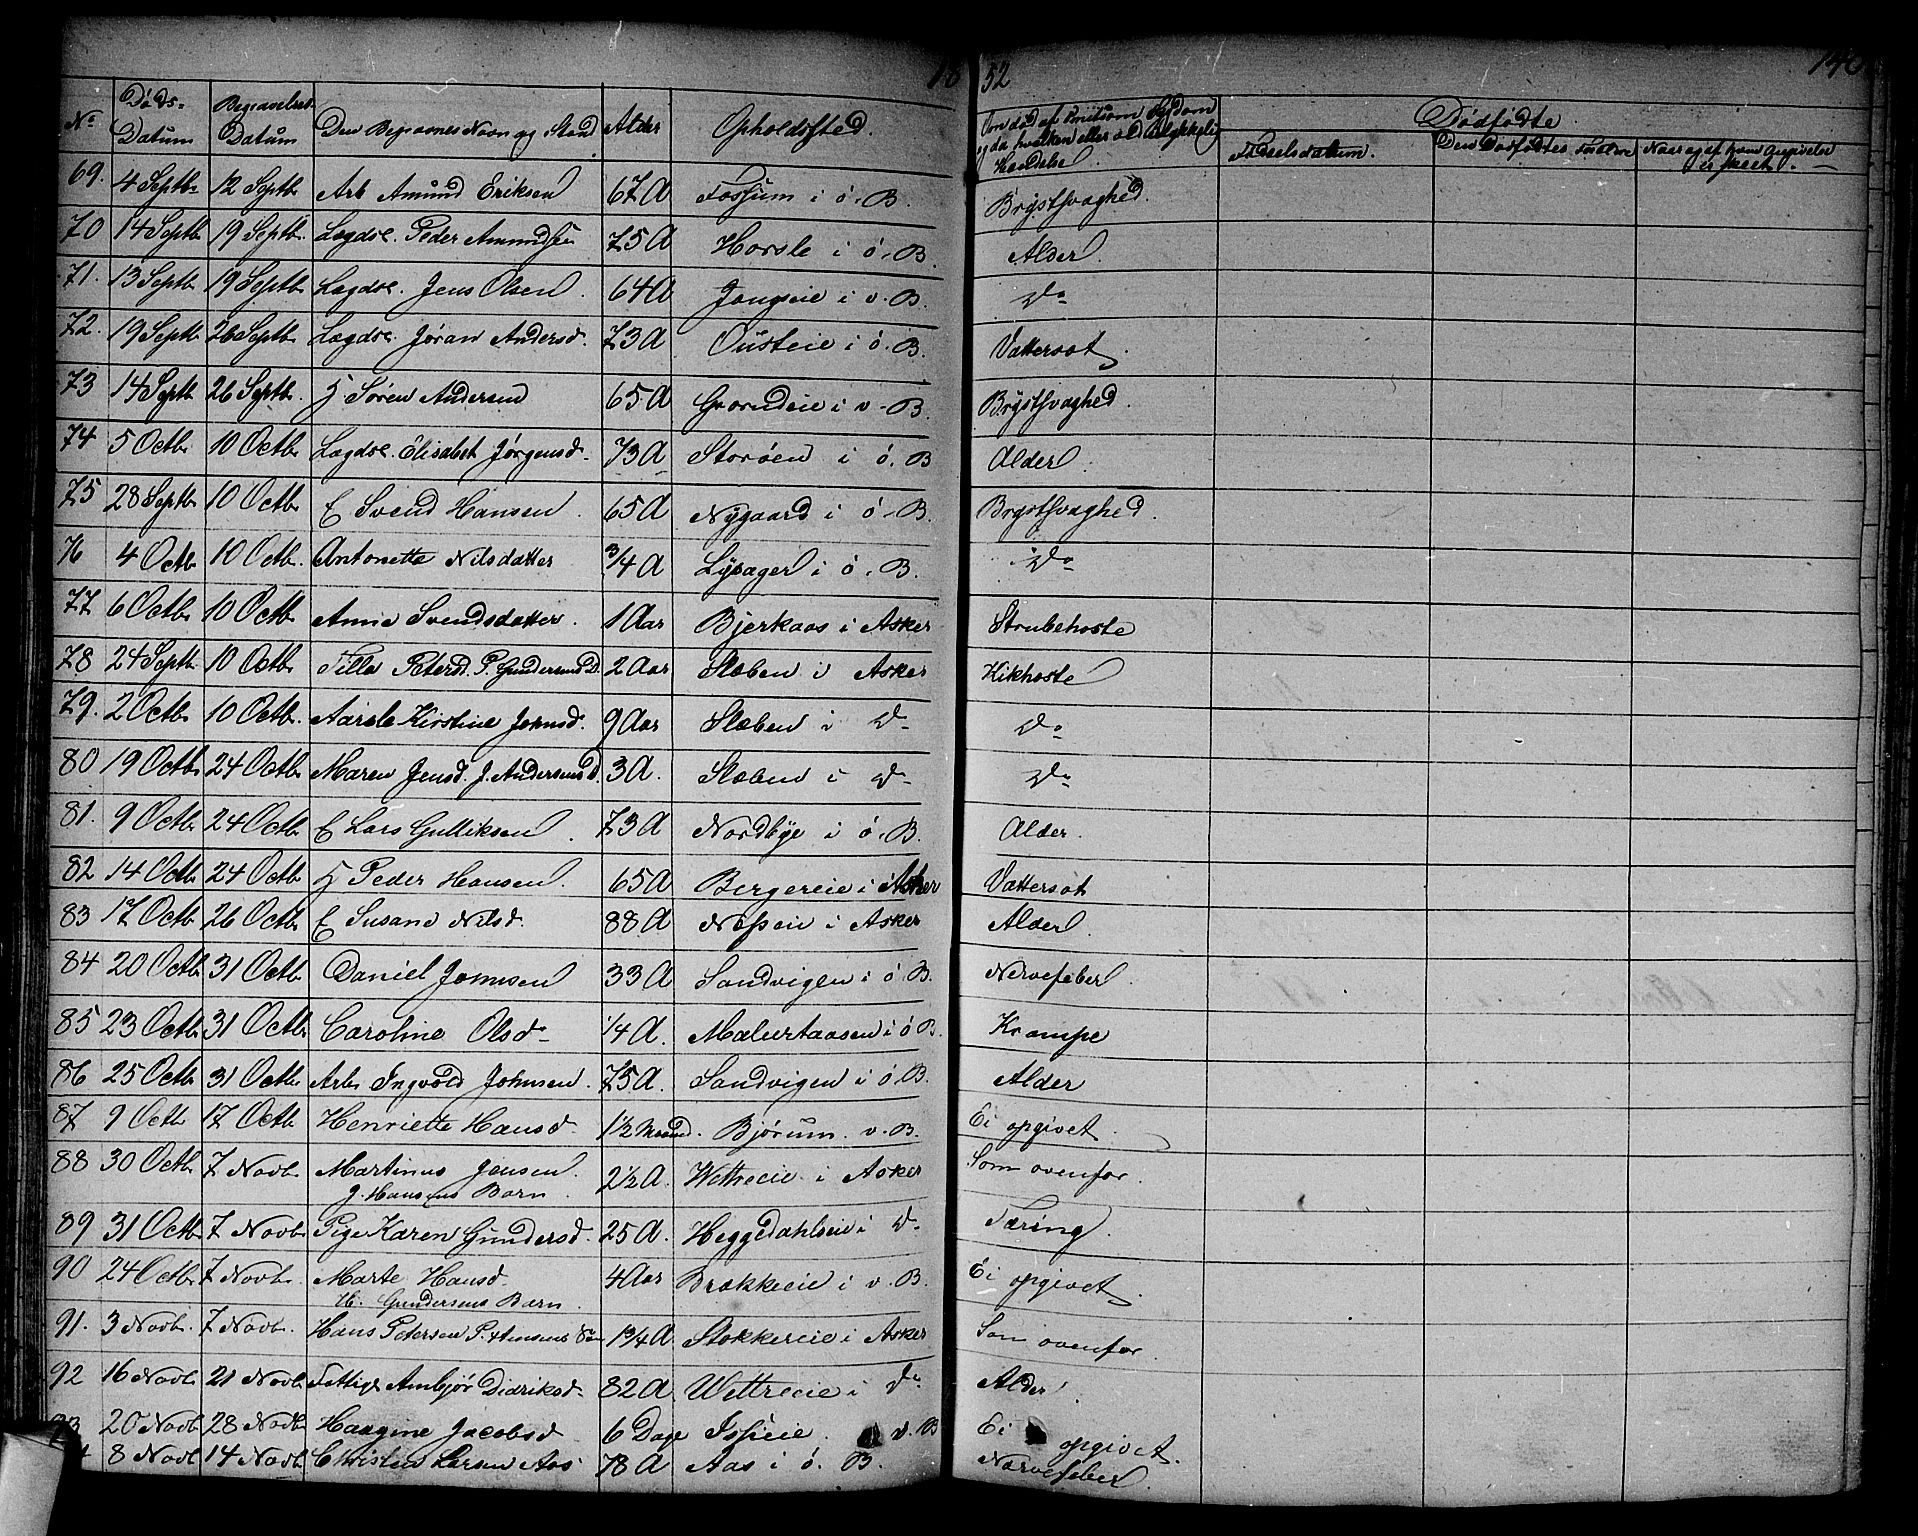 18 52
140
No Døds- Datum Begravelses Datum Den Begravnes Navn og Stand Alder Opholdssted. Om død af Sygdom og da hvilken eller ved Ulykkelig Hændelse Dødfødte.
Fødselsdatum. Den Dødfødtes Naar og af hvem Angivelse er skeet.
69. 4 Septb 12 Septb Arb Amund Eriksen 67 A Fossum i ø. B. Brystsvaghed.
70 14 Septb 19 Septb. Lægdsl. Peder Amundsen 75 A Horsle i ø. B. Alder.
71. 13 Septb 19 Septb Lægdsl. Jens Olsen. 64 A Jongseie i v. B. Do
72. 19 Septb 26 Septb. Lægdsl. Jøran Andersd. 73 A Ousteie i ø. B. Vattersot.
73 14 Septb 26 Septb. Søren Andersen 65 A Grorudeie i v. B. Brystsvaghed.
74 5 Octb 10 Octb. Lægdsl. Elisabet Jørgensd. 73 A Storøen i ø. B Alder.
75 28 Septb 10 Octb E Svend Hansen. 65 A Nygaard i ø. B. Brystsvaghed.
76 4 Octb 10 Octb. Antonette Nilsdatter 3/4 A Lysager i ø. B. Do
77 6 Octb 10 Octb Anne Svendsdatter. 1 Aar Bjerkaas i Asker Strubehoste
78 24 Septb 10 Octb Tilla Petersd. P. Gundersens D. 2 Aar Slæben i Asker Kikhoste
79. 2 Octb 10 Octb. Kirstine Johnsd. 9 Aar Slæben i Do Do
80 19 Octb 24 Octb Maren Jensd. J. Andersens D. 3 A. Slæben i Do Do
81. 9 Octb 24 Octb E Lars Gulliksen. 73 A Nordbye i ø. B. Alder.
82 14 Octb 24 Octb Peder Hansen. 65 A Bergereie i Asker Vattersot
83 17 Octb 26 Octb E Susane Nilsd. 88 A Neseie i Asker Alder.
84 20 Octb 31 Octb Daniel Jonsen 33 A Sandvigen i ø. B. Nervefeber
85 23 Octb 31 Octb Caroline Olsd. 1/4 A. i ø B. Krampe
86 25 Octb 31 Octb Arb Ingvold Johnsen. 75 A. Sandvigen i ø. B. Alder
87 9 Octb 17 Octb Henriette Hansd. 1½ Maaned. Bjørum. v. B. Ei opgivet.
88 30 Octb 7 Novb. Martinus Jensen. 2½ A. Wettreeie i Asker Som ovenfor.
J. Hansens Barn.
89 31 Octb 7 Novb Pige Karen Gundersd. 25 A. Heggedahlseie i Do Tæring.
90 24 Octb 7 Novb. Marte Hansd. 4 Aar Brækkeeie i v. B. Ei opgivet.
H. Gundersens Barn.
91. 3 Novb. 7 Novb. Hans Petersen P. Hansens Søn 1¾ A Stokkereie i Asker Som ovenfor.
92 16 Novb 21 Novb Fattige Ambjør Didriksd. 82 A Wettreeie i Do Alder
93 20 Novb 28 Novb Haagine Jacobsd 6 Dage Isieie v. B Ei opgivet.
8 Novb 14 Novb Christen Larsen Aas 78 A Aas i ø. B. Nervefeber.